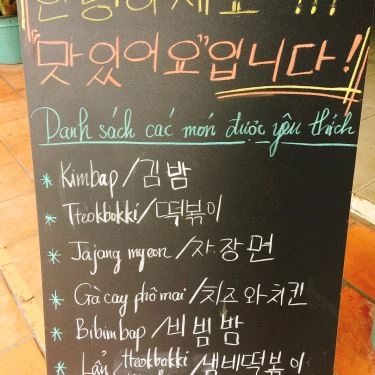 안녕하세요 !!!
"맛있어요"입니다!
Danh sách các món được yêu thích
* Kimbap/김밤
* Tteokbokki/떡볶이
* Jajang myeon/자장면
* Gà cay phô mai/치즈와치킨
* Bibimbap/비빔밤
* Lẩu tteokbokki/냄비떡볶이